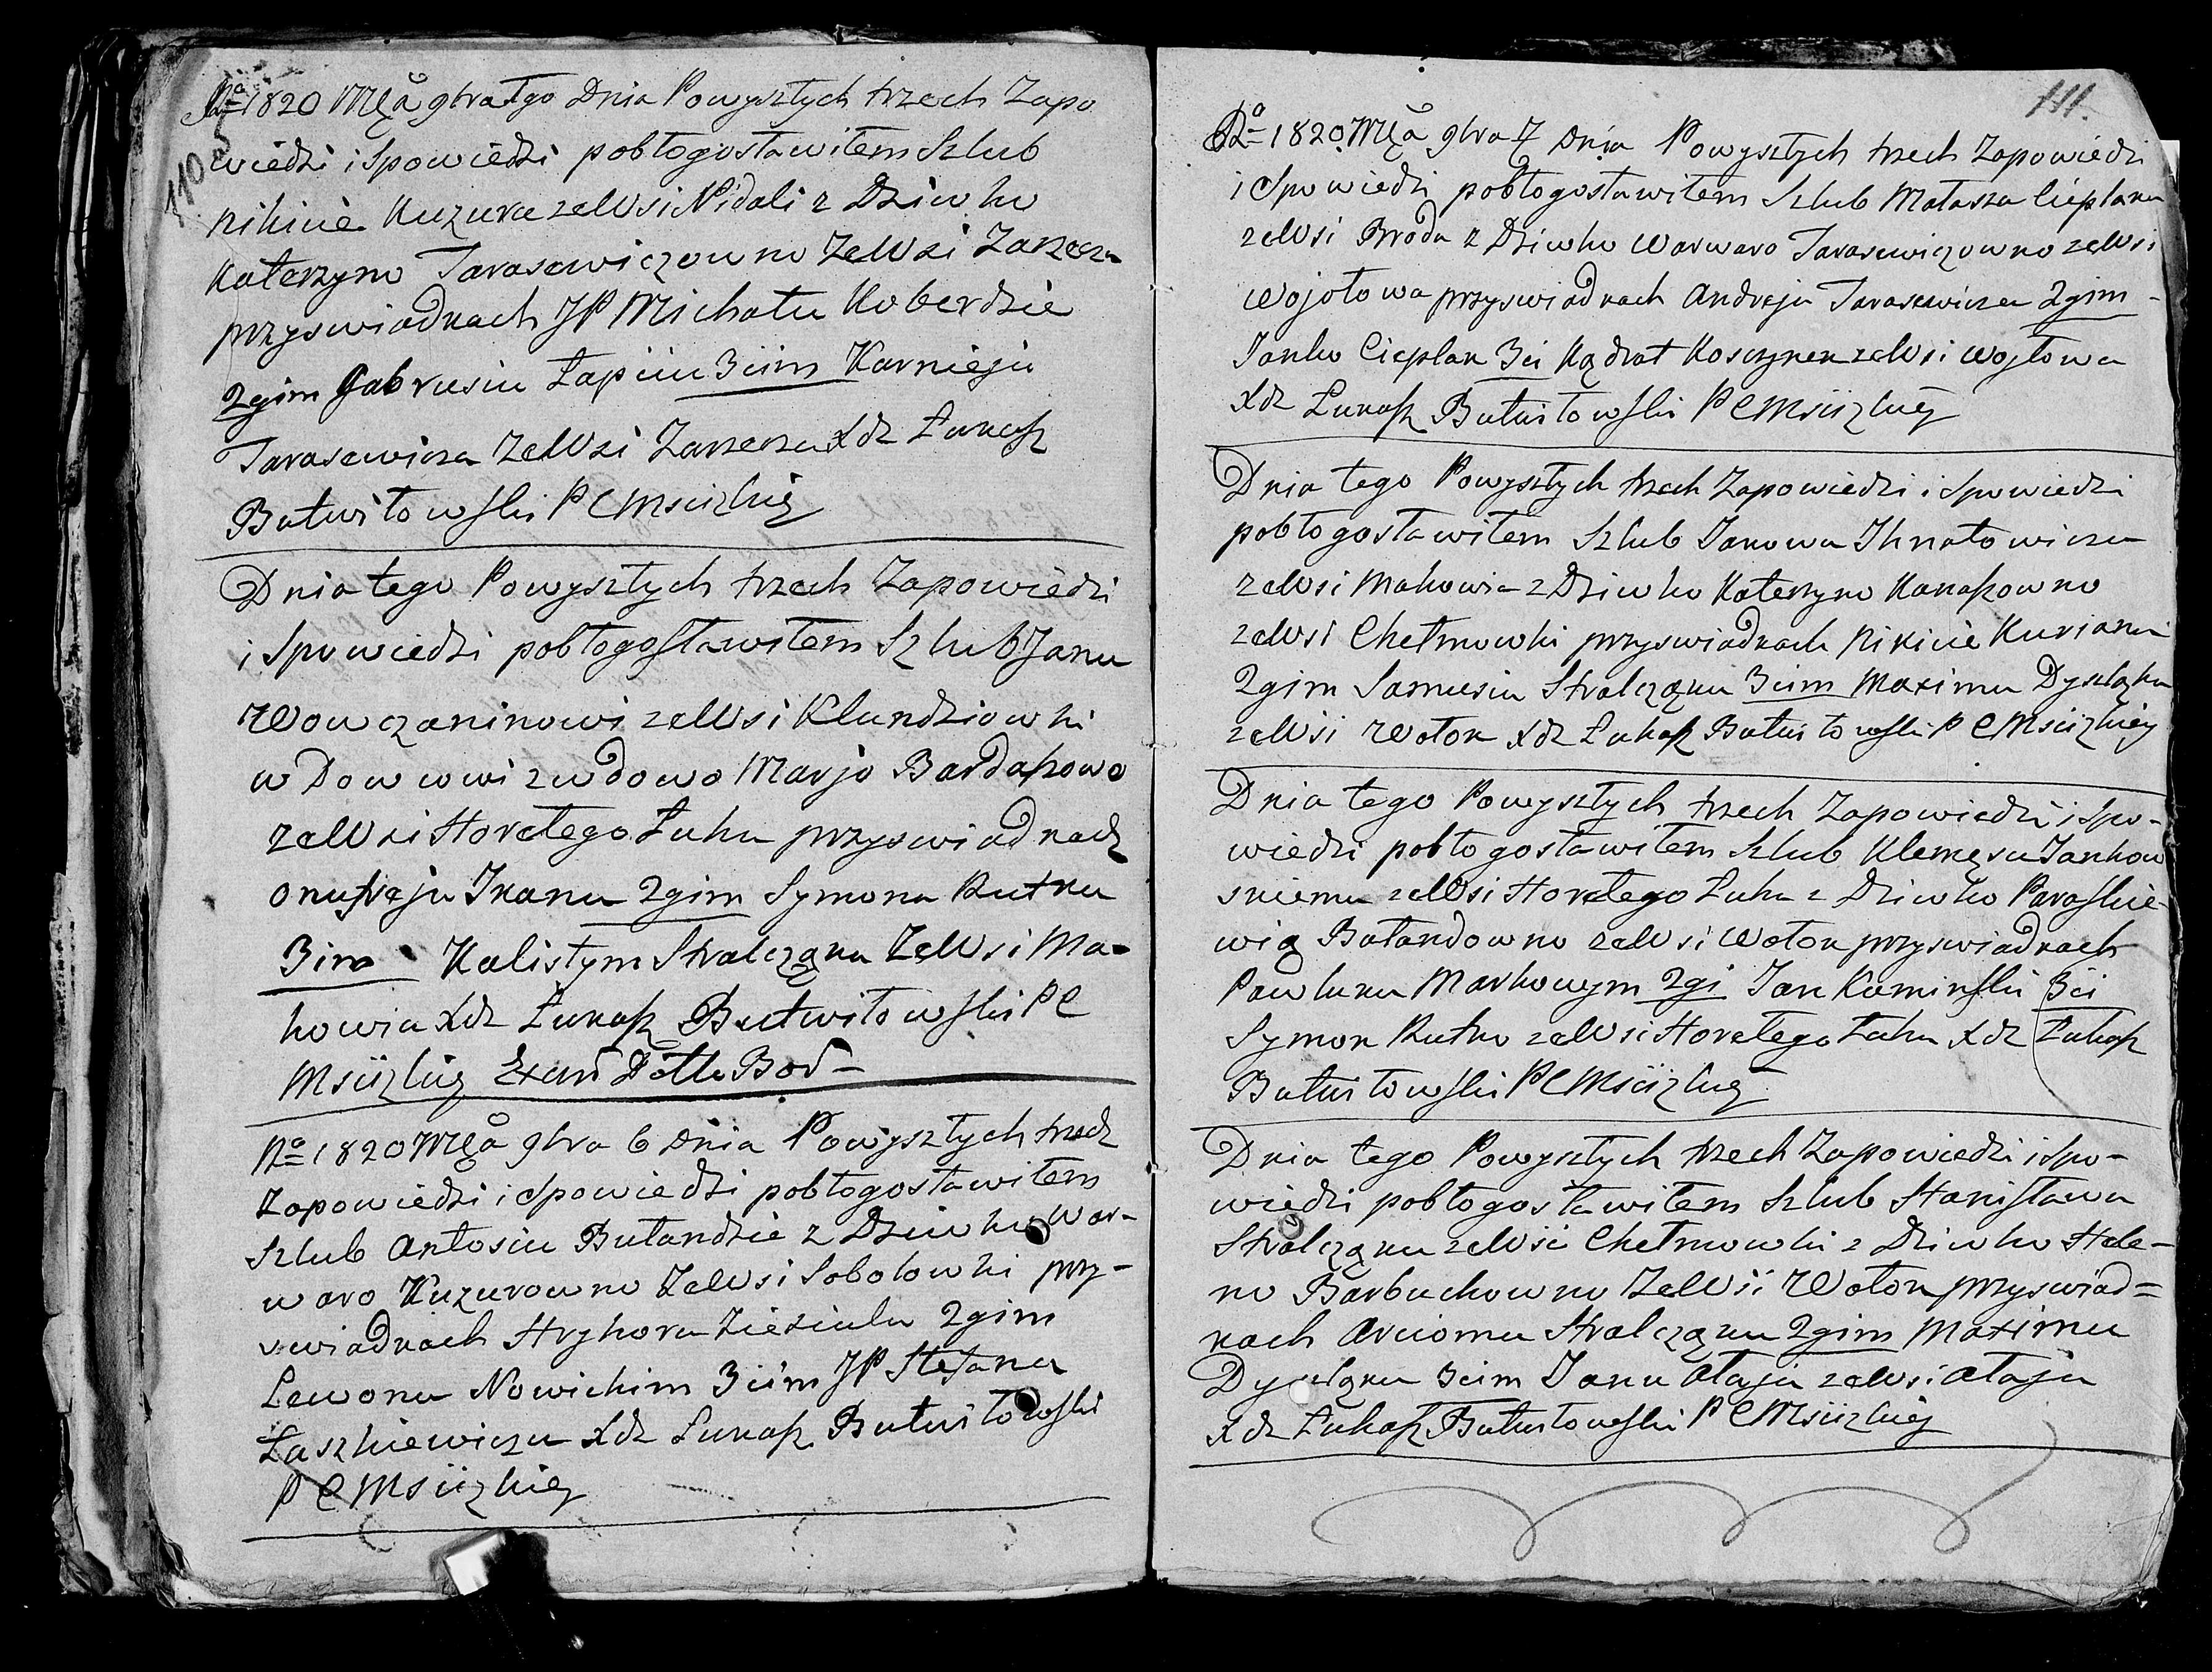 110
Ro 1820 Mca 9bra 1go Dnia Powyszłych trzech Zapo
wiedzi i Spowiedzi pobłogosławiłem Szlub
Nikicie Kuzurze ze Wsi Nidali z Dziwko
Katerzyno Tarasewiczowno ze Wsi Zarzecza
przyswiadkach JP Michału Koberdzie
2gim Gabrusiu Łapiiu 3iim Karnieju
Tarasewicza ze Wsi Zarzecza Xdz Łukasz
Butwiłowski P C Msciizkiey
Dnia tego Powyszłych trzech Zapowiedzi
i Spowiedzi pobłogosławiłem Szlub Janu
Wowczaninowi ze Wsi Klundziowki
wDowcowi z wdowo Marjo Bardaszowo
ze Wsi Horełego Łuhu przyswiadkach
Onufreju Ikanu 2gim Symonu Rutku
3im Kalistym Stralcząku ze Wsi Ma-
kowia Xdz Łukasz Butwiłowski P C
Msciizkiey
Ro 1820 Mca 9bra 6 Dnia Powyszłych trzech
Zapowiedzi i Spowiedzi pobłogosławiłem
Szlub Antosiu Butandzie z Dziwko War-
waro Kuzurowno ze Wsi Sobotowki przy-
swiadkach Hryhoru Zieziulu 2gim
Lewonu Nowickim 3iim JP Stefanu
Łaszkiewiczu Xdz Łukasz Butwiłowski
P C Msciizkiey
111.
Ro 1820 Mca 9bra 7 Dnia Powyszłych trzech Zapowiedzi
i Spowiedzi pobłogosławiłem Szlub Matasza Cieplaku
ze Wsi Broda z Dziwko Warwaro Tarasewiczowno ze Wsi
Wojotowa przyswiadkach Andreju Tarasewicza 2gim
Janko Cieplak 3ci Kądrat Kosczynek ze Wsi Wojtowa
Xdz Łukasz Butwiłowski P C Msciizkiey
Dnia tego Powyszłych trzech Zapowiedzi i Spowiedzi
pobłogosławiłem Szlub Janowu Ihnatowicza
ze Wsi Makowia z Dziwko Katerzyno Kanaszowno
ze Wsi Chełmowki przyswiadkach Nikicie Kurianu
2gim Samusiu Stralcząku 3iim Maximu Dyszlaku
ze Wsi Wotok Xdz Łukasz Butwiłowski P C Msciizkiey
Dnia tego Powyszłych trzech Zapowiedzi i Spo-
wiedzi pobłogosławiłem Szlub Klemęsu Jankow
skiemu ze Wsi Horełego Łuhu z Dziwko Paraskie-
wią Butandowno ze Wsi Wotok przyswiadkach
Pawluku Markowym 2gi Jan Kaminski 3ci
Symon Rutko ze Wsi Horełego Łuhu Xdz Łukasz
Butwiłowski P C Msciizkiey
Dnia tego Powyszłych trzech Zapowiedzi i Spo-
wiedzi pobłogosławiłem Szlub Stanisława
Stralcząku ze Wsi Chełmowki z Dziwko Hele-
no Barbuchowno ze Wsi Wotok przyswiad=
kach Arciomu Stralcząku 2gim Maximu
Dyszląku 3cim Janu Ataju ze Wsi Ataju
Xdz Łukasz Butwiłowski P C Msciizkiey